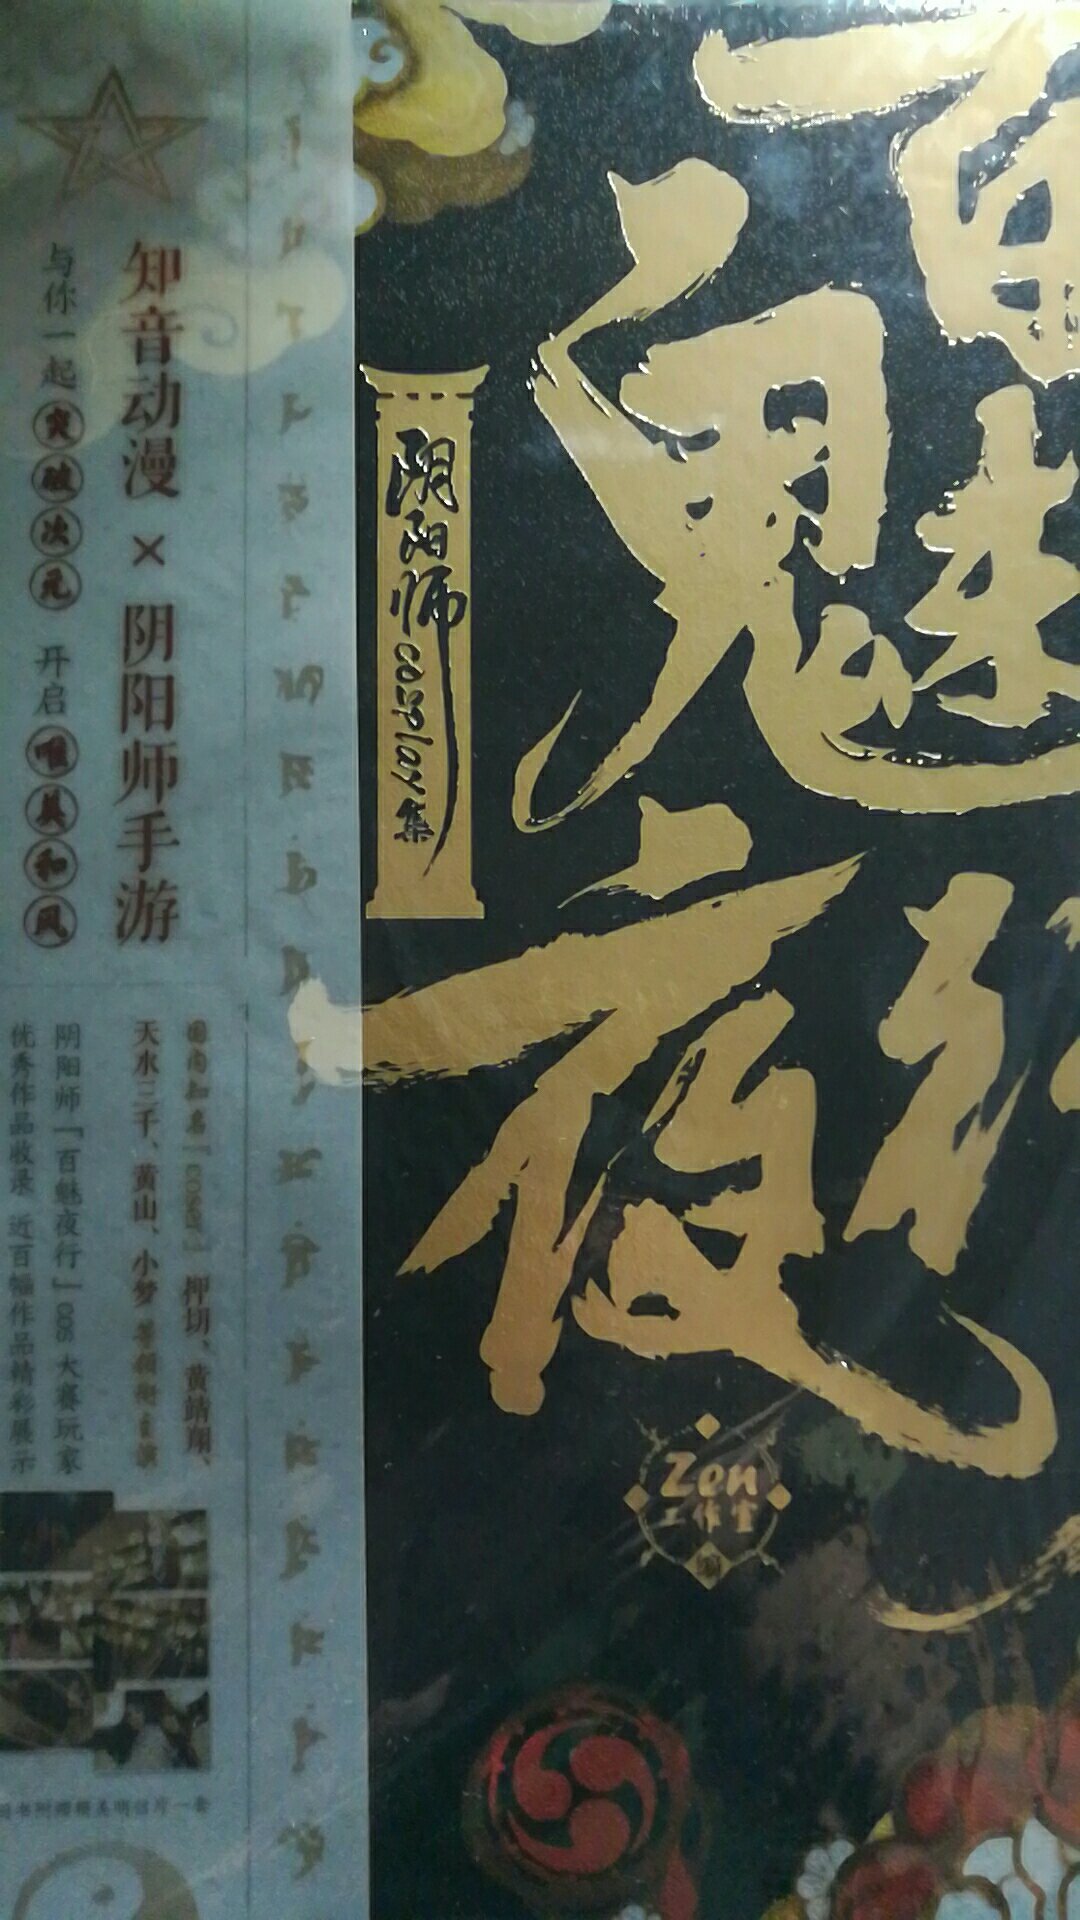 百魅
夜行
阴阳师cosplay集
Zen
工作室
编
知音动漫×阴阳师手游
与你一起突破次元 开启唯美和风
国内知名「coser」押切、黄靖翔、
天水三千、黄山、小梦等领衔主演
阴阳师「百魅夜行」cos大赛玩家
优秀作品收录 近百幅作品精彩展示
随书附赠精美明信片一套